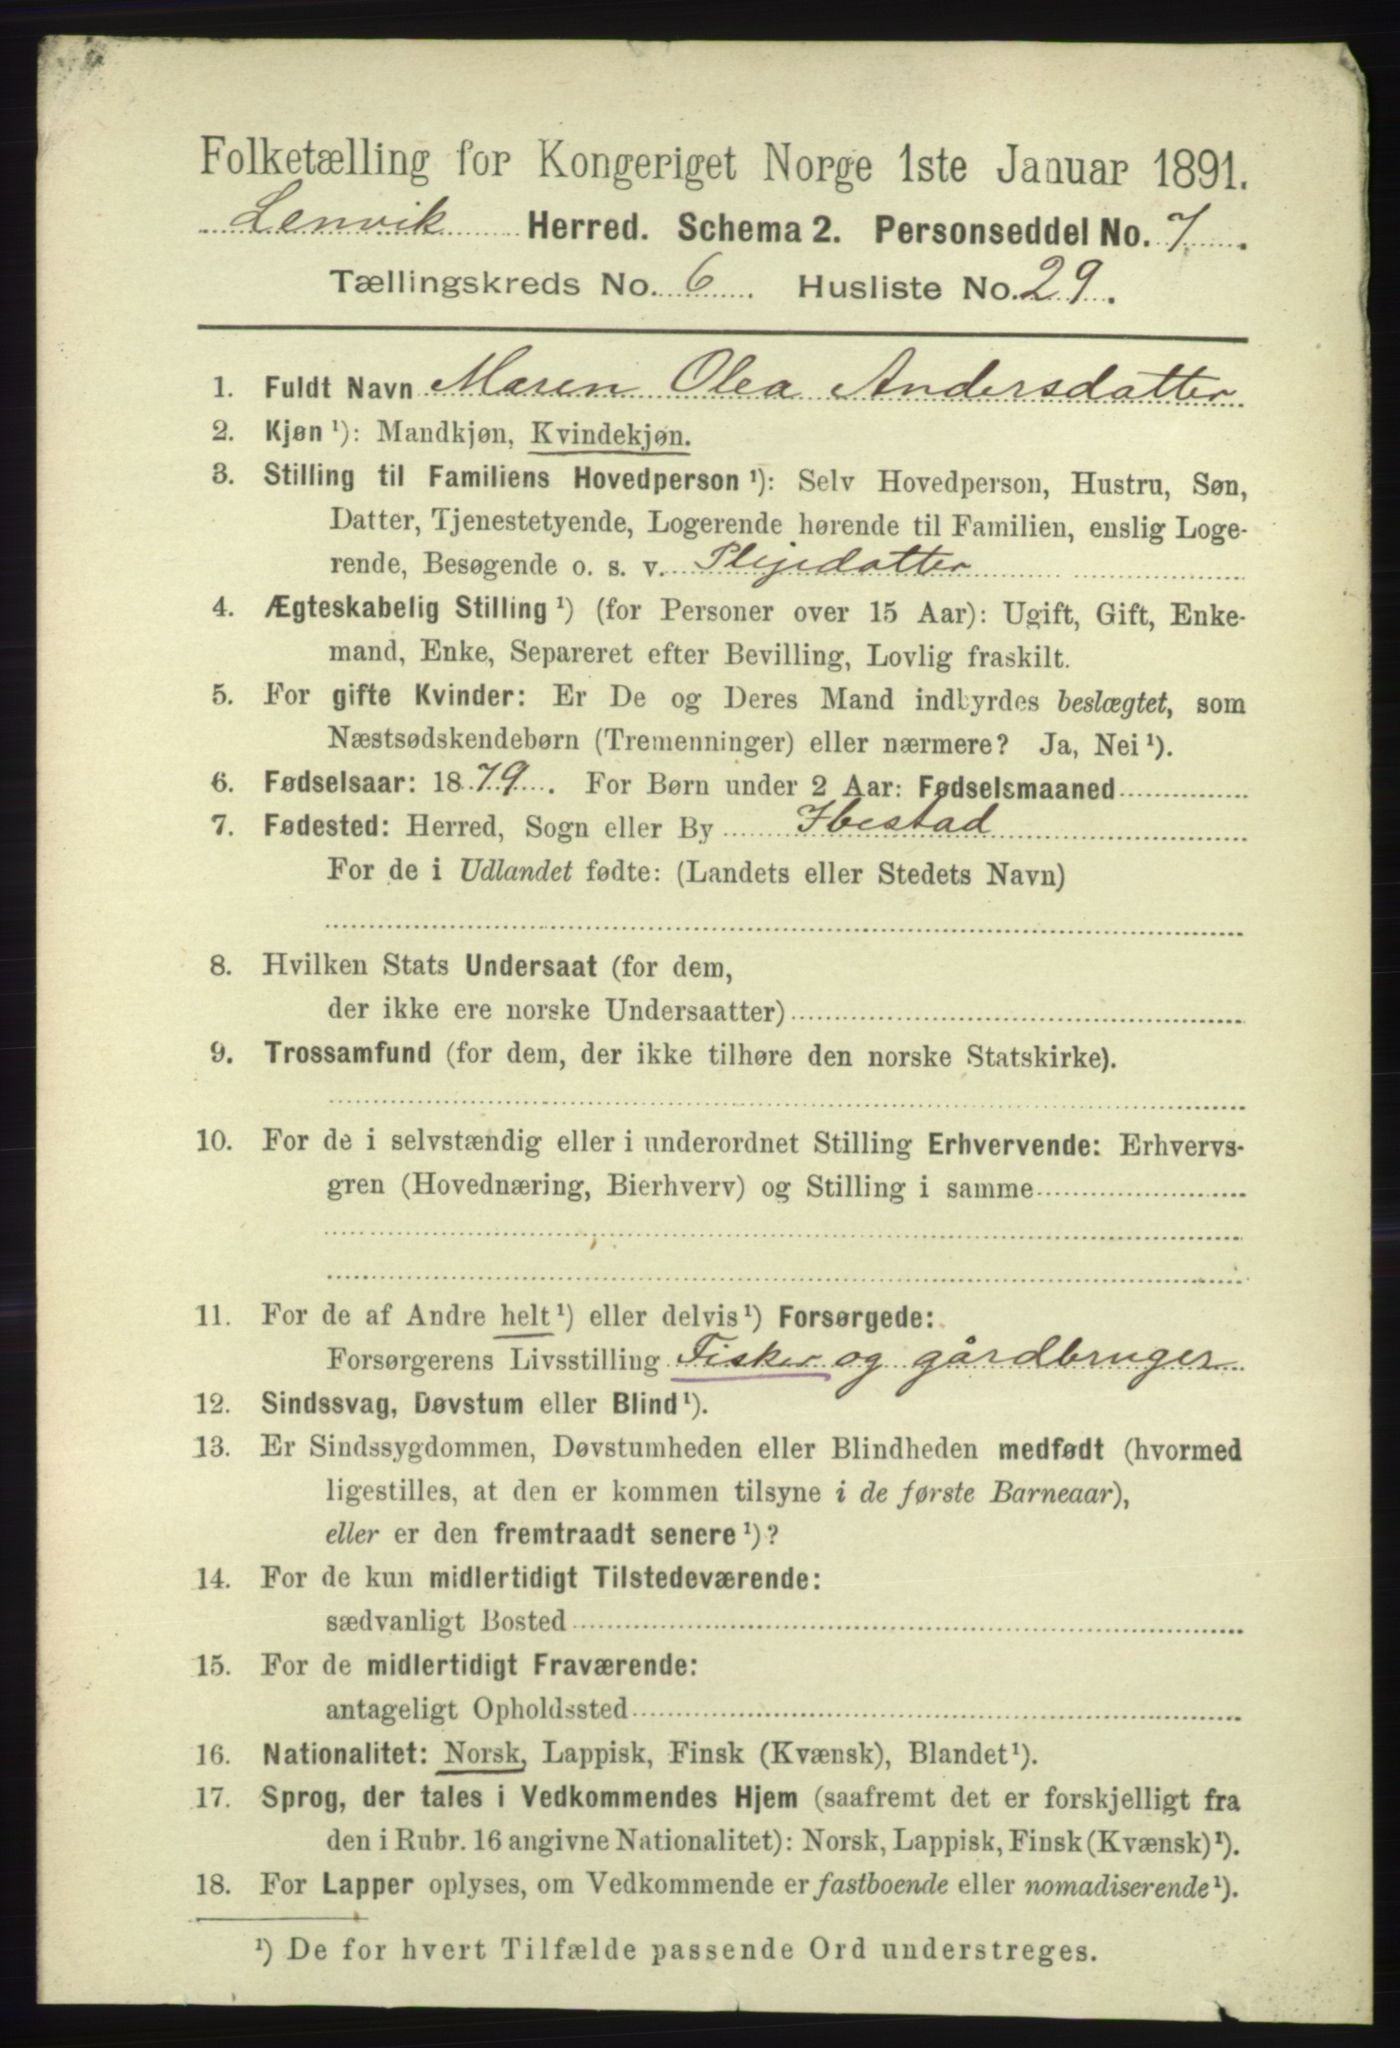 Folketælling for Kongeriget Norge 1ste Januar 1891.
Lenvik Herred. Schema 2. Personseddel No. 7.
Tællingskreds No. 6. Husliste No. 29.
1. Fuldt Navn Maren Olea Andersdatter
2. Kjøn ¹): Mandkjøn, Kvindekjøn.
3. Stilling til Familiens Hovedperson ¹): Selv Hovedperson, Hustru, Søn,
Datter, Tjenestetyende, Logerende hørende til Familien, enslig Loge-
rende, Besøgende o. s. v. Plejedatter
4. Ægteskabelig Stilling ¹) (for Personer over 15 Aar): Ugift, Gift, Enke-
mand, Enke, Separeret efter Bevilling, Lovlig fraskilt.
5. For gifte Kvinder: Er De og Deres Mand indbyrdes beslægtet, som
Næstsødskendebørn (Tremenninger) eller nærmere? Ja, Nei ¹).
6. Fødselsaar: 1879. For Børn under 2 Aar: Fødselsmaaned
7. Fødested: Herred, Sogn eller By Ibestad
For de i Udlandet fødte: (Landets eller Stedets Navn)
8. Hvilken Stats Undersaat (for dem,
der ikke ere norske Undersaatter)
9. Trossamfund (for dem, der ikke tilhøre den norske Statskirke).
10. For de i selvstændig eller i underordnet Stilling Erhvervende: Erhvervs-
gren (Hovednæring, Bierhverv) og Stilling i samme
11. For de af Andre helt ¹) eller delvis ¹) Forsørgede:
Forsørgerens Livsstilling Fisker og gårdbruger
12. Sindssvag, Døvstum eller Blind ¹).
13. Er Sindssygdommen, Døvstumheden eller Blindheden medfødt (hvormed
ligestilles, at den er kommen tilsyne i de første Barneaar),
eller er den fremtraadt senere ¹)?
14. For de kun midlertidigt Tilstedeværende:
sædvanligt Bosted
15. For de midlertidigt Fraværende:
antageligt Opholdssted
16. Nationalitet: Norsk, Lappisk, Finsk (Kvænsk), Blandet ¹).
17. Sprog, der tales i Vedkommendes Hjem (saafremt det er forskjelligt fra
den i Rubr. 16 angivne Nationalitet): Norsk, Lappisk, Finsk (Kvænsk) ¹).
18. For Lapper oplyses, om Vedkommende er fastboende eller nomadiserende ¹).
¹) De for hvert Tilfælde passende Ord understreges.